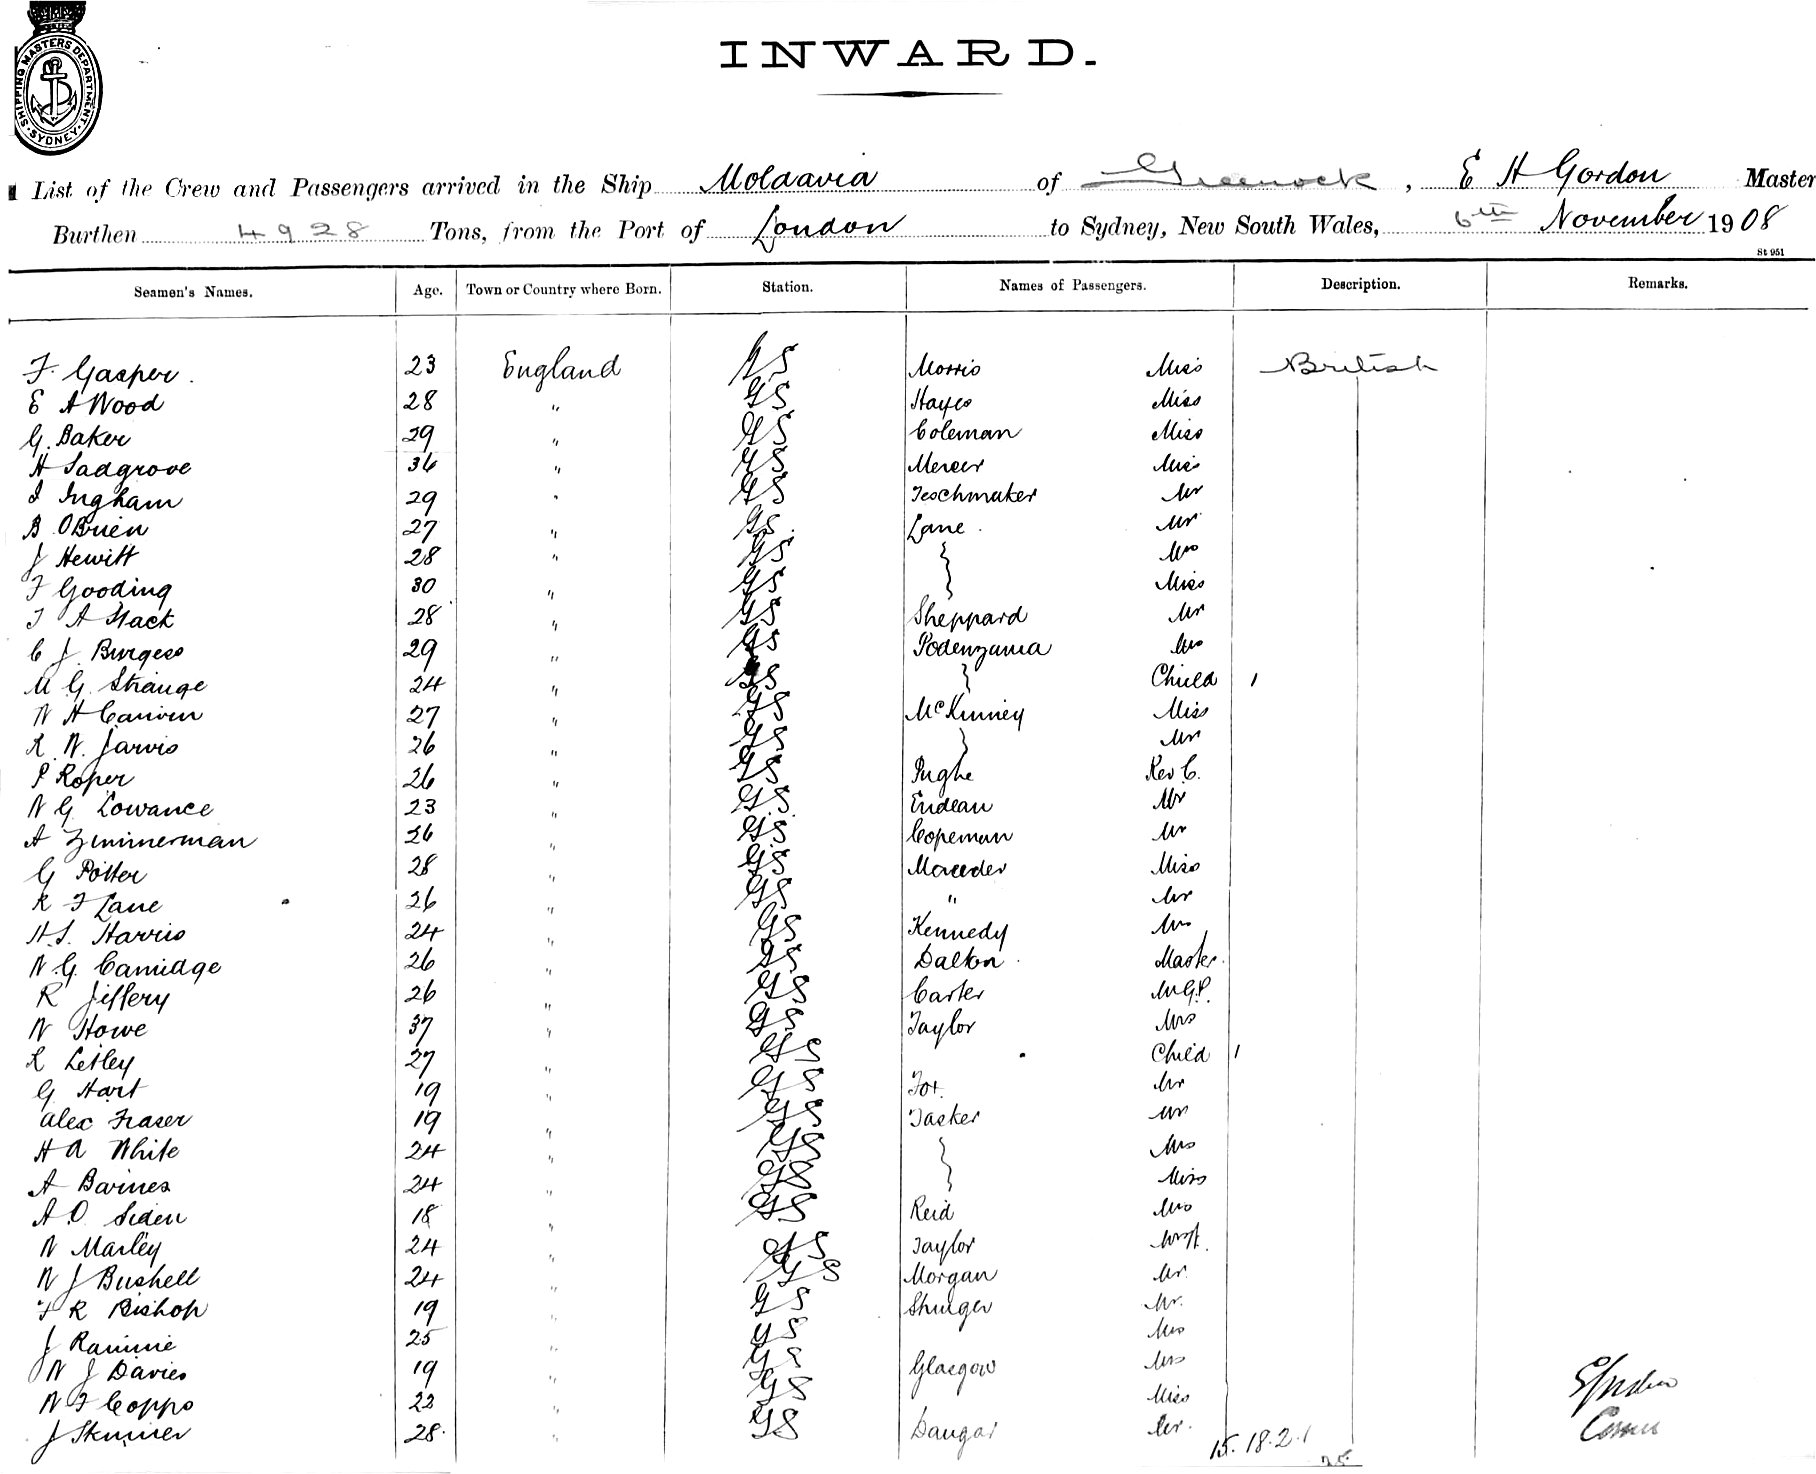 SHIPPING MASTERS DEPARTMENT. SYDNEY
INWARD.
List of the Crew and Passengers arrived in the Ship Moldavia of Greenock, E H Gordon Master
Burthen 4928 Tons, from the Port of London to Sydney, New South Wales, 6th November 1908
St 951
Seamen's Names. Age. Town or Country where Born. Station. Names of Passengers. Description. Remarks.
F. Gasper. 23 England GS Morris Miss British
E A Wood 28 " GS Hayes Miss
G. Baker 29 " GS Coleman Miss
H Sadgrove 36 " GS Mercer Miss
I Ingham 29 " GS Teschmaker Mr
B OBrien 27 " GS Lane Mr
J Hewitt 28 " GS } Mrs
F Gooding 30 " GS Miss
F A Stack 28 " GS Sheppard Mr
C J. Burgess 29 " GS Podenzania Mrs
M G. Strange 24 " GS } Child 1
W H 27 " GS McKinney Miss
R. W. Jarvis 26 " GS } Mr
P Roper 26 " GS Pughe Rev C.
W G. Lowance 23 " GS Endean Mr
A Zimmerman 26 " GS Copeman Mr
G Potter 28 " GS Miss
R F Lane 26 " GS " Mr
H.S. Harris 24 " GS Kennedy Mrs
W.G. Camidge 26 " GS Dalton Master
R Jeffery 26 " GS Carter M.G.P.
W Howe 37 " GS Taylor Mrs
R Letley 27 " GS Child 1
G Hart 19 " GS Fox. Mr
Alex Fraser 19 " GS Tasker Mr
H A White 24 " GS } Mrs
A Barnes 24 " GS Miss
A.O. Siden 18 " GS Reid Mrs
W Marley 24 " GS Taylor
W J Bushell 24 " GS Morgan Mr.
F R Bishop 19 " GS Mr.
J 25 " GS Mrs
W J Davies 19 " GS Glasgow Mrs
W F Copps 22 " GS Miss
J Skinner 28 " GS Dangar Mr. 15.18.2.1